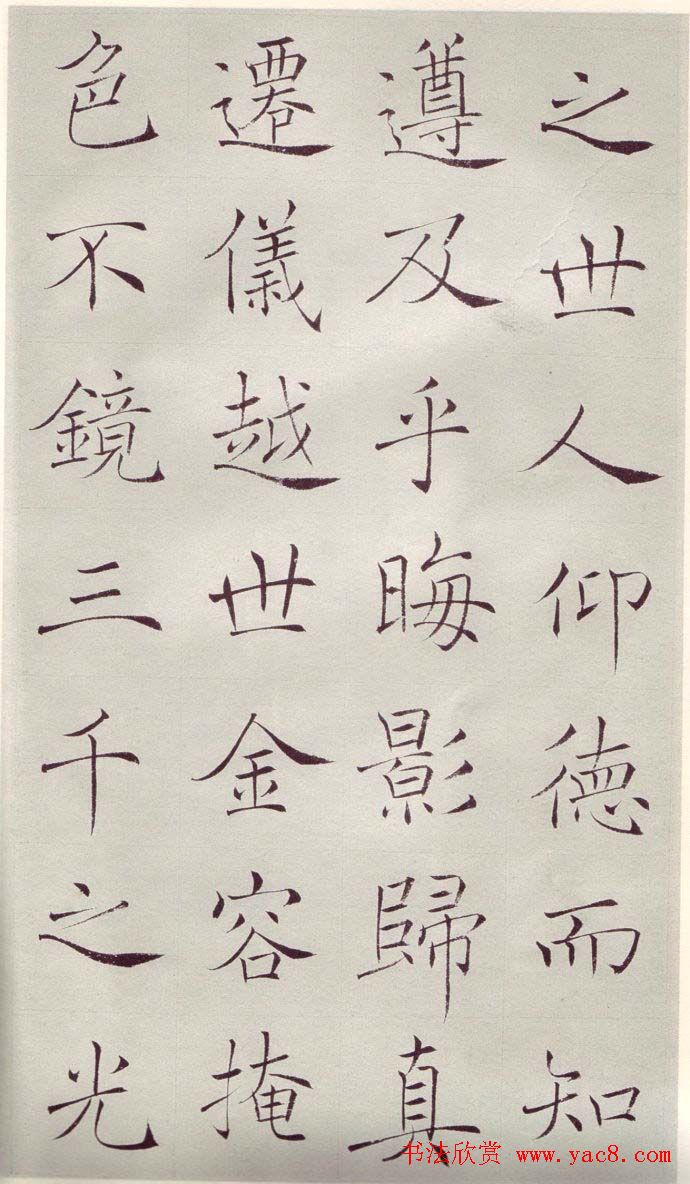 之世人仰德而知
遵及乎晦影歸真
遷儀越世金容掩
色不鏡三千之光
书法欣赏 www.yac8.com